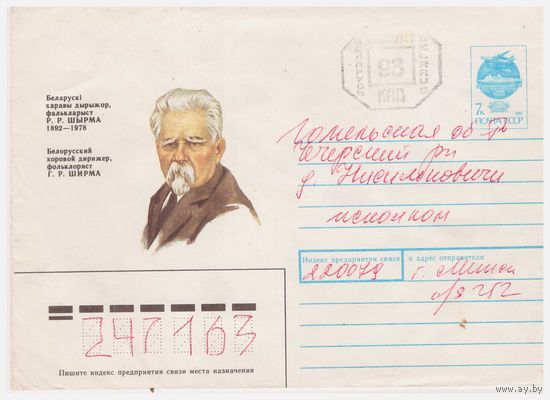 Беларускі
харавы дырыжор,
фалькларыст
Р. Р. ШЫРМА
1892—1978
Белорусский
хоровой дирижер,
фольклорист
Г. Р. ШИРМА
93
7к
ПОЧТА СССР
Гомельская обл
Чечерский рн
д.
исполком
Индекс предприятия связи и адрес отправителя
220079 г. Минск
а/я 252
247163
Пишите индекс предприятия связи места назначения
www.ay.by